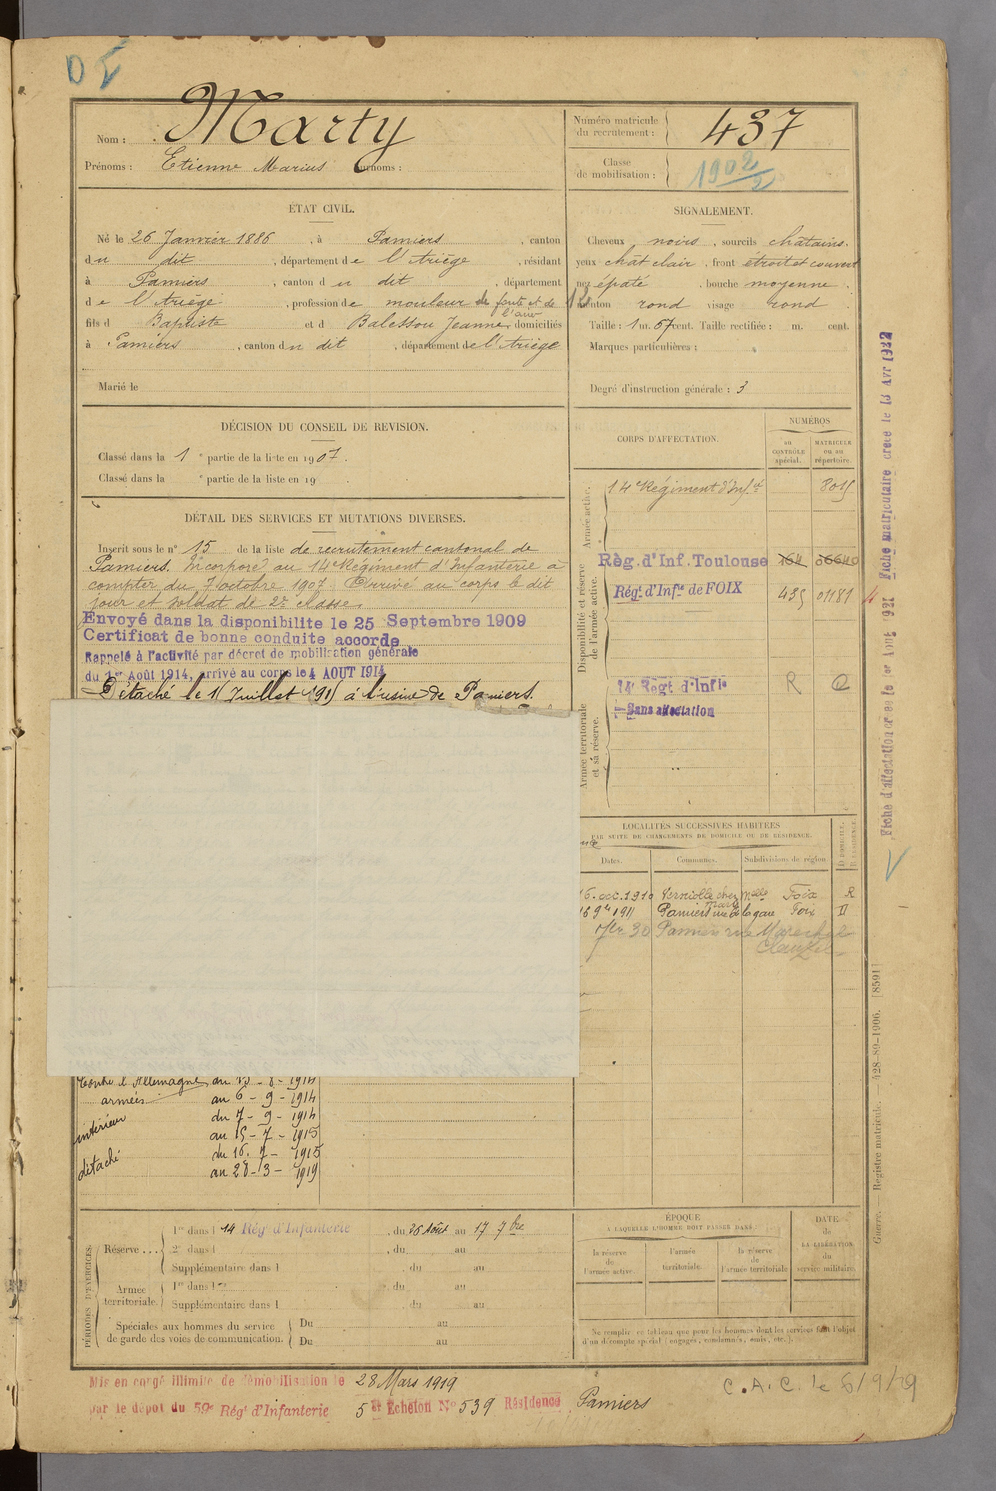 D
Marty
Nom :
Prénoms : Etienne Marius Surnoms :
Numéro matricule du recrutement : 437
Classe de mobilisation : 1902/2
ÉTAT CIVIL.
Né le 26 Janvier 1886, à Pamiers, canton
du dit, département de l'Ariège, résidant
à Pamiers, canton du dit, département
de l'Ariège, profession de mouleur de fonte et de l'airs
fils d Baptiste et d Balessou Jeanne, domiciliés
à Pamiers, canton du dit, département de l'Ariège
Marié le
SIGNALEMENT.
Cheveux noirs, sourcils châtains.
yeux chât clair, front étroit et couvert
nez épaté, bouche moyenne.
menton rond visage rond.
Taille : 1 m. 67 cent. Taille rectifiée : m. cent.
Marques particulières :
Degré d'instruction générale : 3
DÉCISION DU CONSEIL DE REVISION.
Classé dans la 1 e partie de la liste en 1907.
Classé dans la e partie de la liste en 19
DÉTAIL DES SERVICES ET MUTATIONS DIVERSES.
Inscrit sous le n° 15 de la liste de recrutement cantonal de
Pamiers. Incorporé au 14e Régiment d'Infanterie à
compter du 7 octobre 1907. Arrivé au corps le dit
jour et soldat de 2e classe.
Envoyé dans la disponibilite le 25 Septembre 1909
Certificat de bonne conduite accorde
Rappelé à l'activité par décret de mobilisation générale
du 1er Août 1914, arrivé au corps le 4 AOUT 1914
Détaché le 16 Juillet 1915 à l'usine de Pamiers.
CORPS D'AFFECTATION.
NUMÉROS
au CONTRÔLE spécial.
MATRICULE ou au répertoire.
Armée active.
14e Régiment d'Inf.ie 8015
Disponibilité et réserve de l'armée active.
Règ. d'Inf. Toulouse 164 06640
Régt. d'Infie de FOIX 435 01181
Armée territoriale et sa réserve.
14e Regt d'Infie R
Sans affectation
LOCALITÉS SUCCESSIVES HABITÉES
PAR SUITE DE CHANGEMENTS DE DOMICILE OU DE RÉSIDENCE.
Dates. Communes. Subdivisions de région
D DOMICILE. R RÉSIDENCE.
16. oct. 1910 Verniolle chez Foix R
16 9bre 1911 Pamiers rue de la gare Foix D
30 Pamiers rue Marechal Clauzel
Contre l'Allemagne du 13 - 8 - 1914
armées au 6 - 9 - 1914
intérieur du 7 - 9 - 1914
au 15 - 7 - 1915
détaché du 16. 7 - 1915
au 28 - 3 - 1919
PÉRIODES D'EXERCICES.
Réserve ... 1re dans l 14 Rég. d'Infanterie, du 26 Août au 17 7bre
2e dans l, du au
Supplémentaire dans l du au
Armée territoriale. 1re dans l . du au
Supplémentaire dans l . du au
Spéciales aux hommes du service de garde des voies de communication. Du au
Du au
ÉPOQUE
A LAQUELLE L'HOMME DOIT PASSER DANS
la réserve de l'armée active.
l'armée territoriale.
la réserve de l'armée territoriale
DATE de LA LIBÉRATION du service militaire.
Ne remplir ce tableau que pour les hommes dont les services font l'objet
d'un décompte spécial (engagés, condamnés, omis, etc.).
Mis en congé illimité de démobilisation le 28 Mars 1919
par le dépot du 59e Régt d'Infanterie 5e Echelon N° 539 Résidence Pamiers
C.A.C. le 6/9/29
Fiche d'affectation créée le 1er Aout 1931 Fiche matriculaire créée le 13 Avr 1932
Guerre. — Registre matricule. — 428-89-1906. [8591]